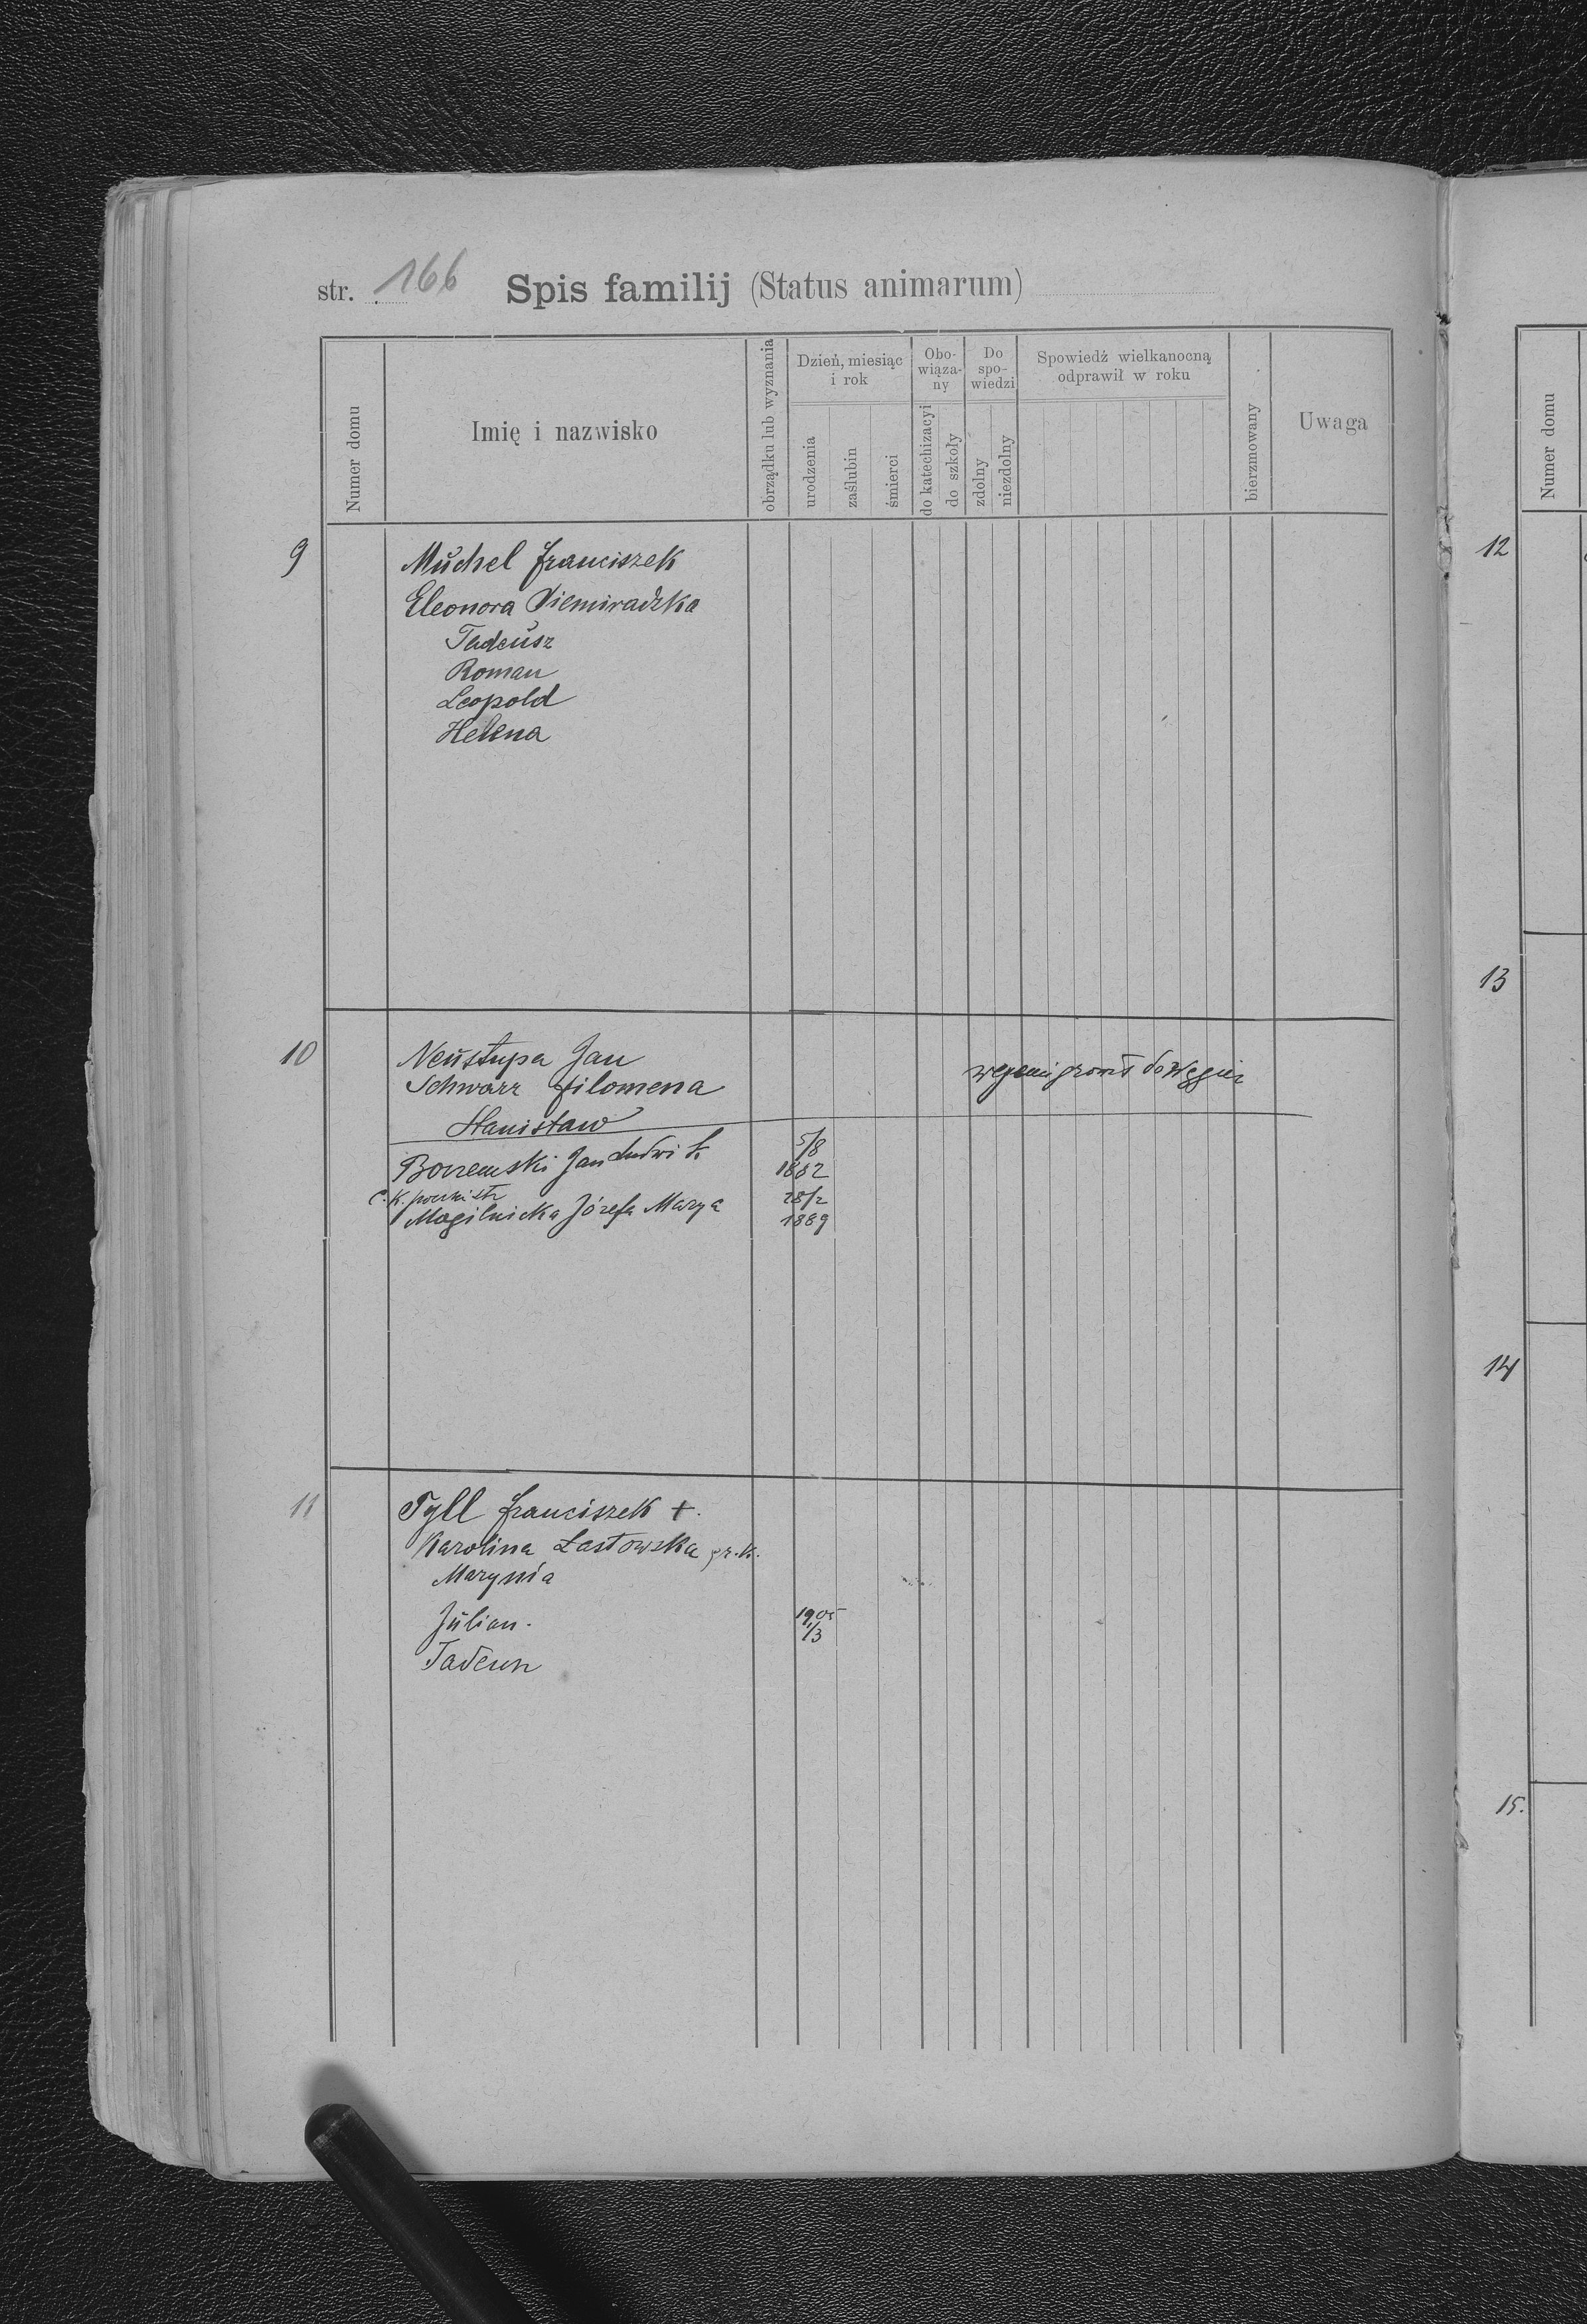 str. 166 Spis familij (Status animarum)
Numer domu
Imię i nazwisko
obrządku lub wyznania
Dzień, miesiąc
i rok
urodzenia
zaślubin
śmierci
Obo-
wiąza-
ny
do katechizacyi
do szkoły
Do
spo-
wiedzi
zdolny
niezdolny
Spowiedź wielkanocną
odprawił w roku
bierzmowany
Uwaga
9 Muchel Franciszek
Eleonora Siemiradzka
Tadeusz
Roman
Leopold
Helena
10 Neustupa Jan
Schwarz Filomena
Stanisław
do Węgier
Borzemski Jan Ludwik 5/8
1882
c. k. poczmistr 28/2
Mogilnicka Józefa Marya 1889
11 Tyll Franciszek +.
Karolina Łastowska gr. k.
Marynia
Julian. 1905
1/3
Tadeusz
Numer domu
12
13
14
15.